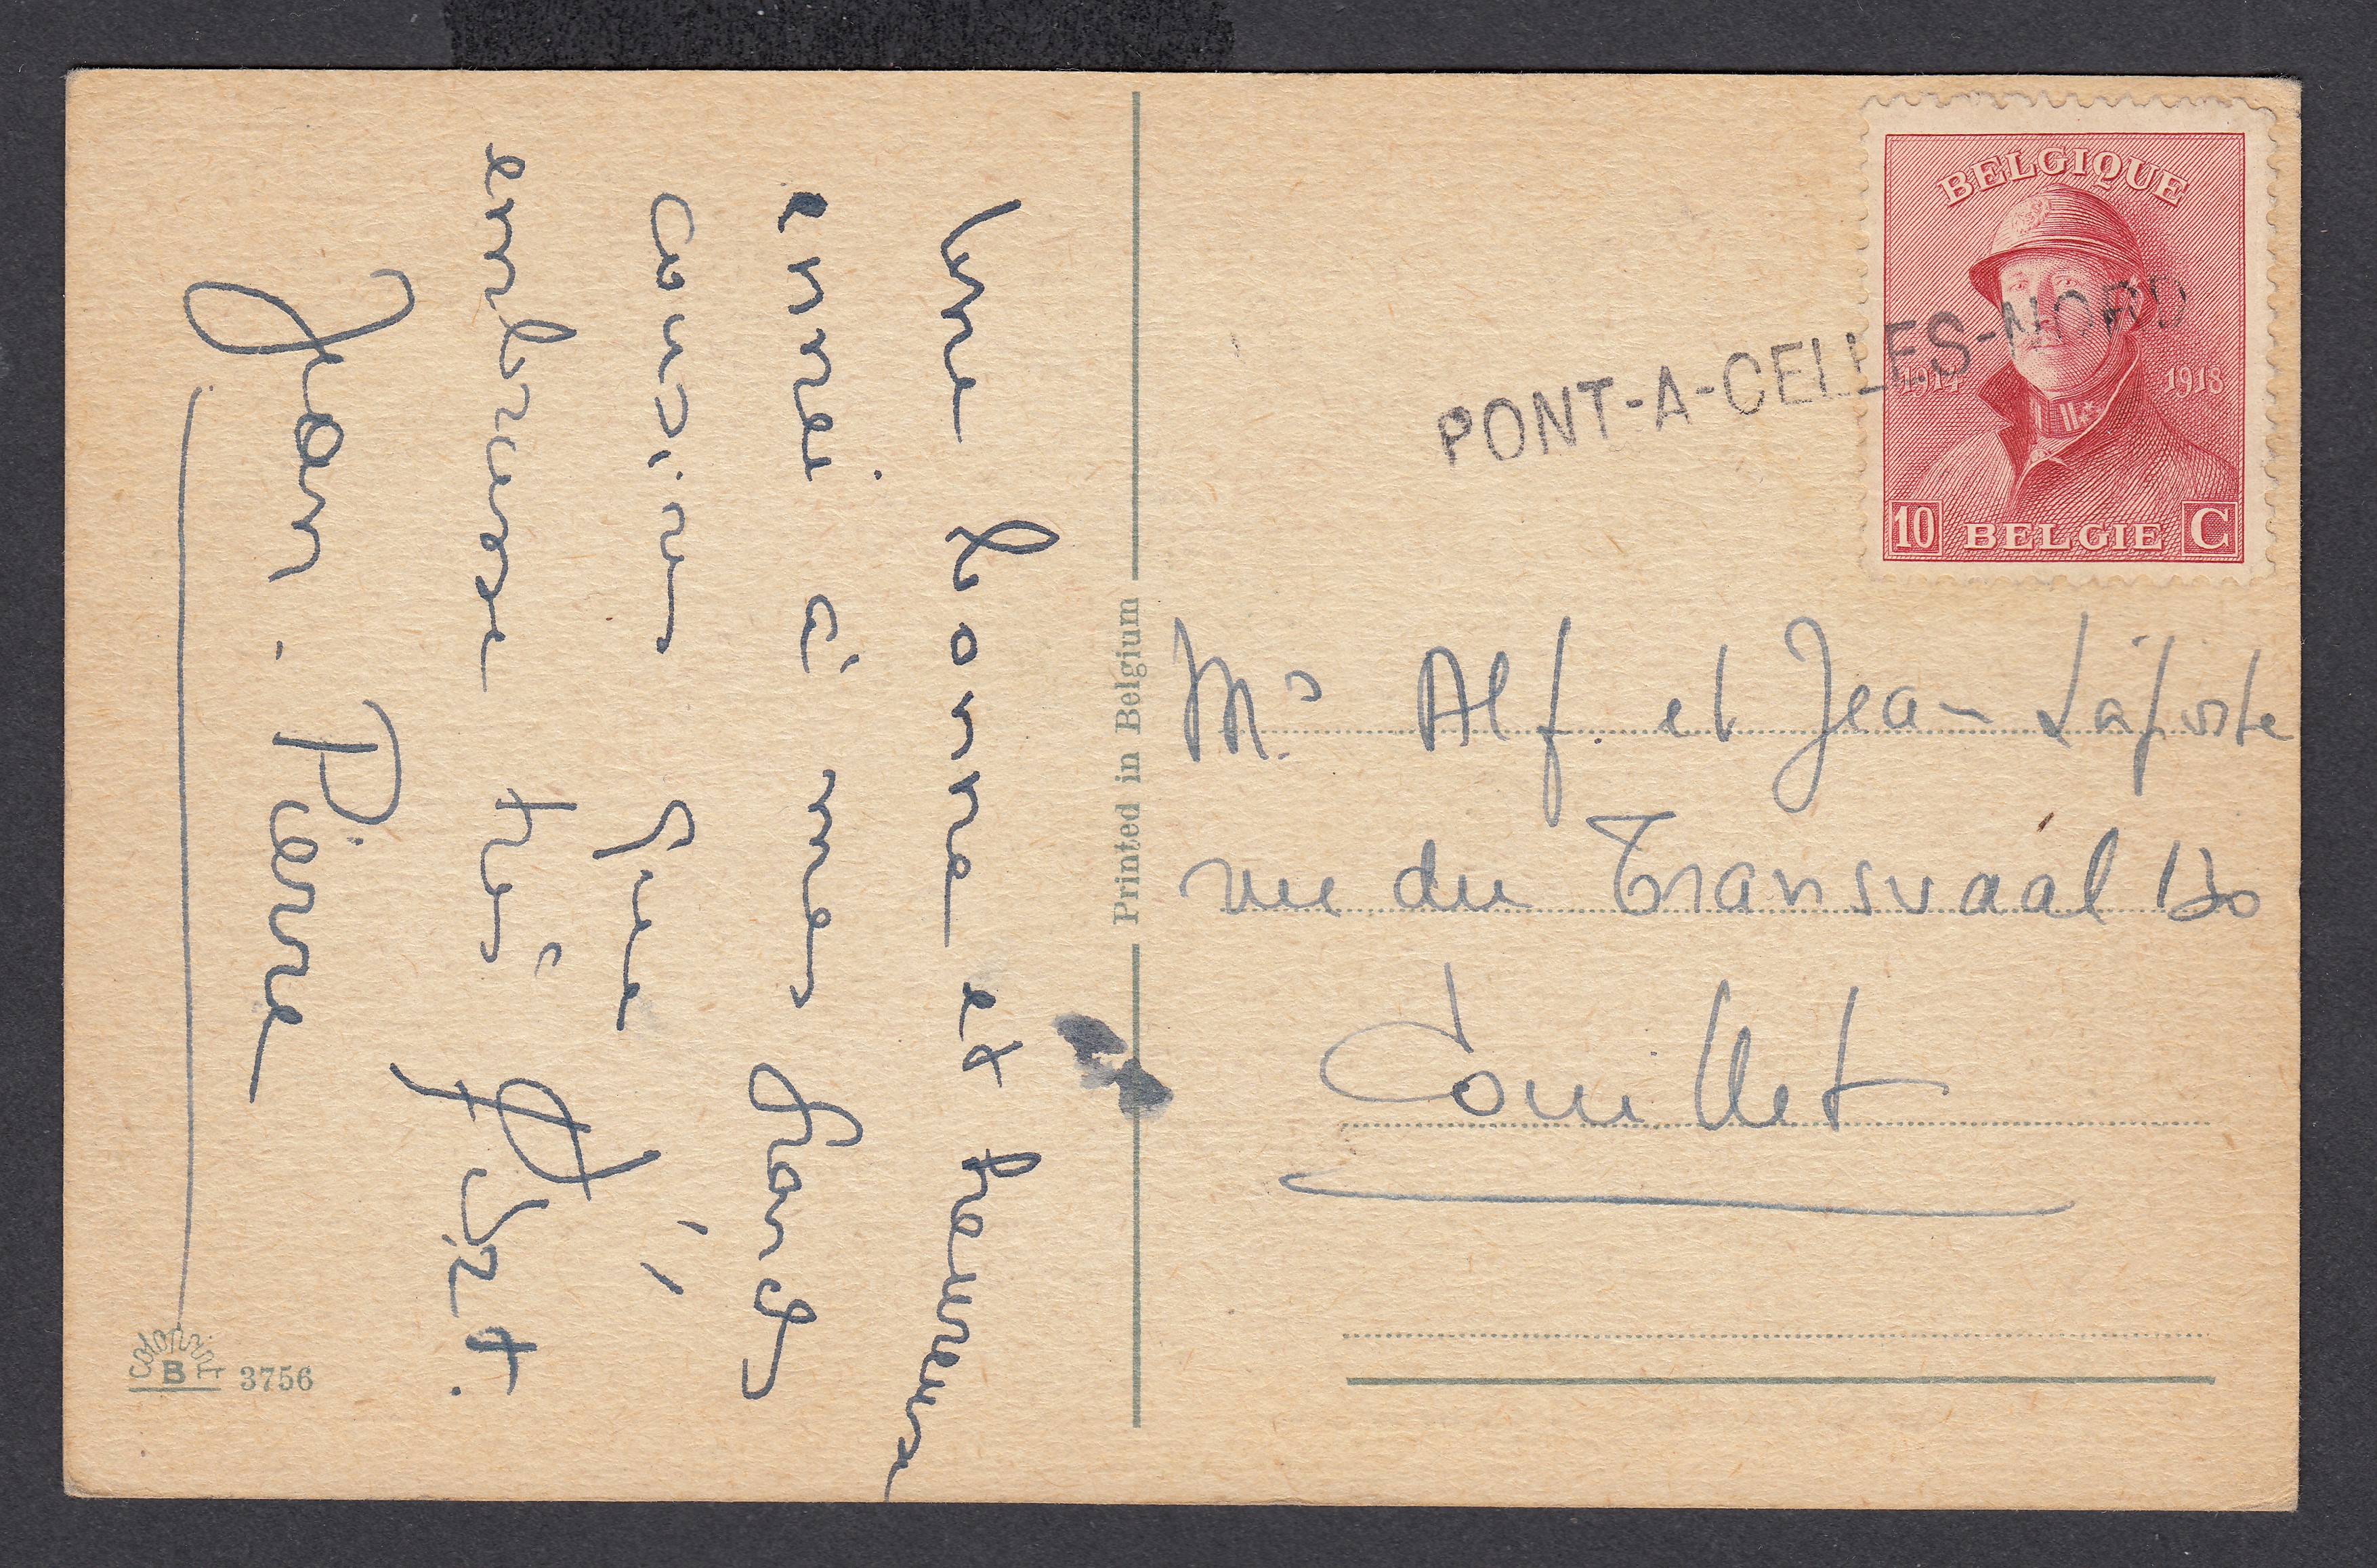 Une bonne et heureuse
année à mes grands
cousins que j'
embrasse très fort.
Jean-Pierre
COLORPRINT
B 3756
Printed in Belgium
BELGIQUE
1914 1918
10 BELGIE C
PONT-A-CELLES-NORD
Mrs Alf. et Jean
rue du Transvaal
Couillet